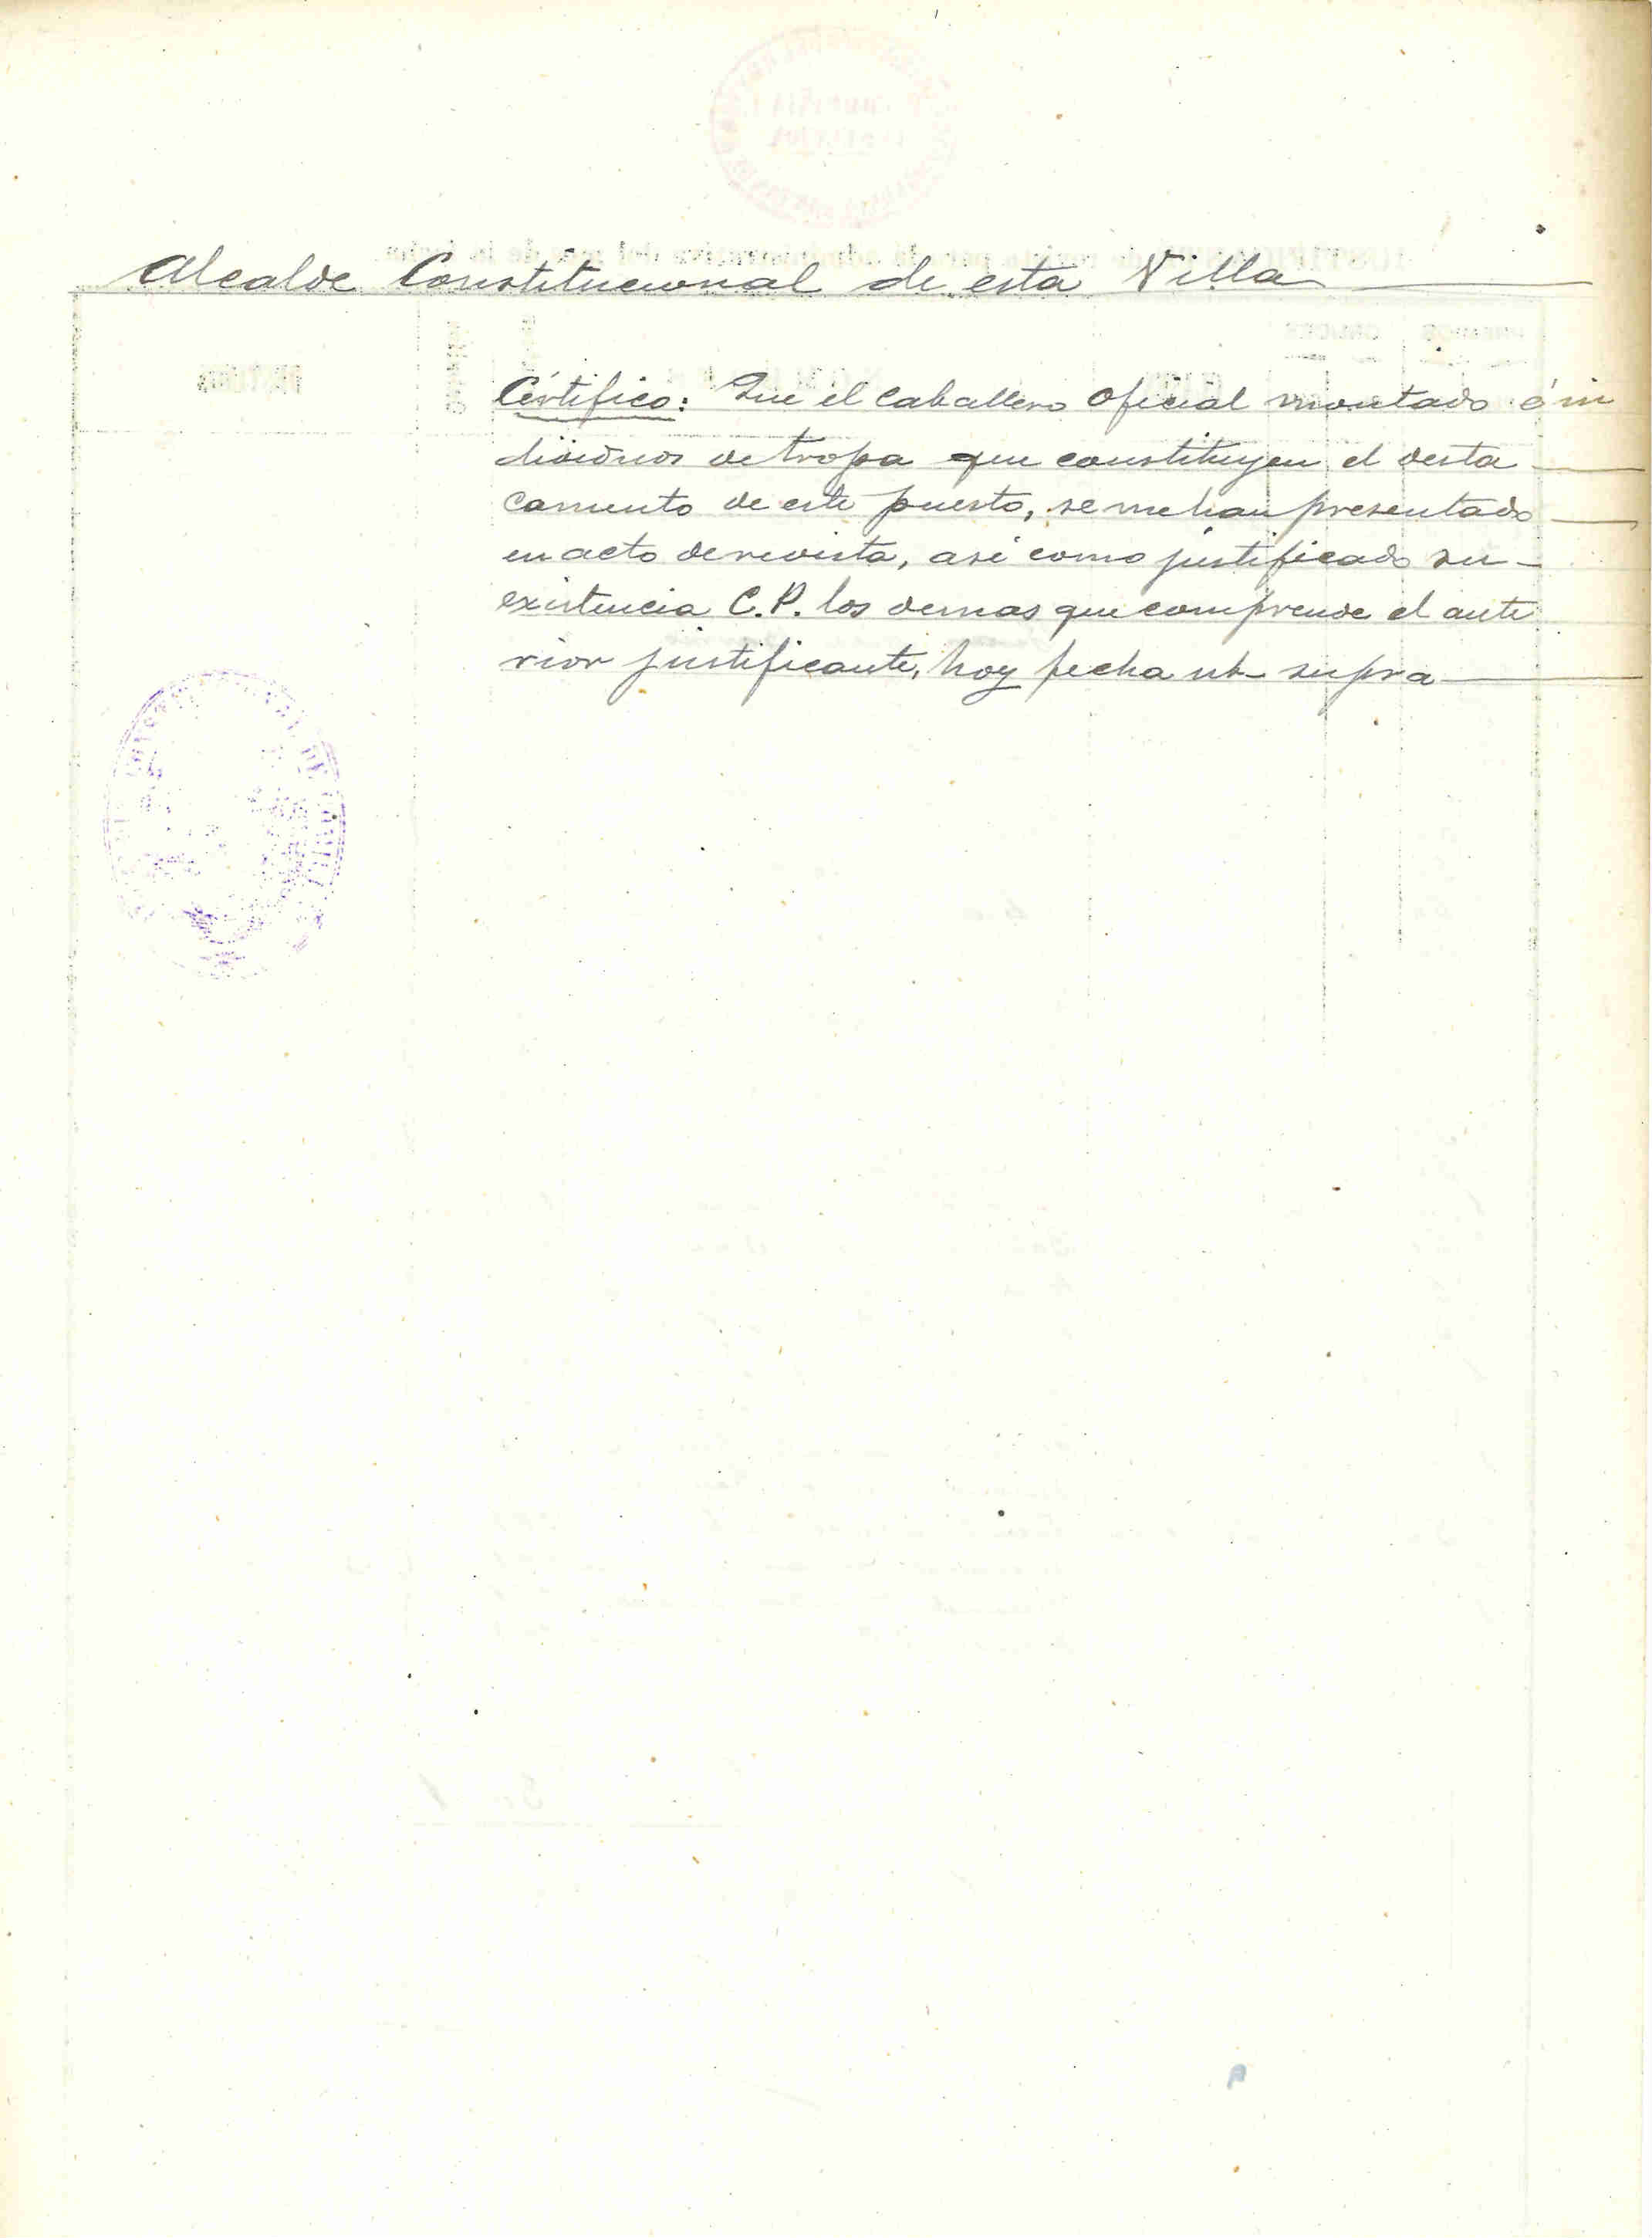 Alcalde Constitucional de esta Villa
Certifico: Que el caballero Oficial montado é in
dividuos de tropa que constituyen el desta
camento de este puesto, se me han presentado
en acto de revista, asi como justificado su
existencia C.P. los demas que comprende el ante
rior justificante, hoy fecha ut supra